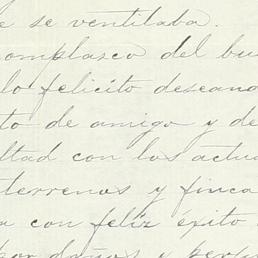 e se ventilaba.
omplazco del bu
lo felicito deseand
to de amigo y de
ltad con los actua
terrenos y finca
a con feliz éxito
por daños y perju